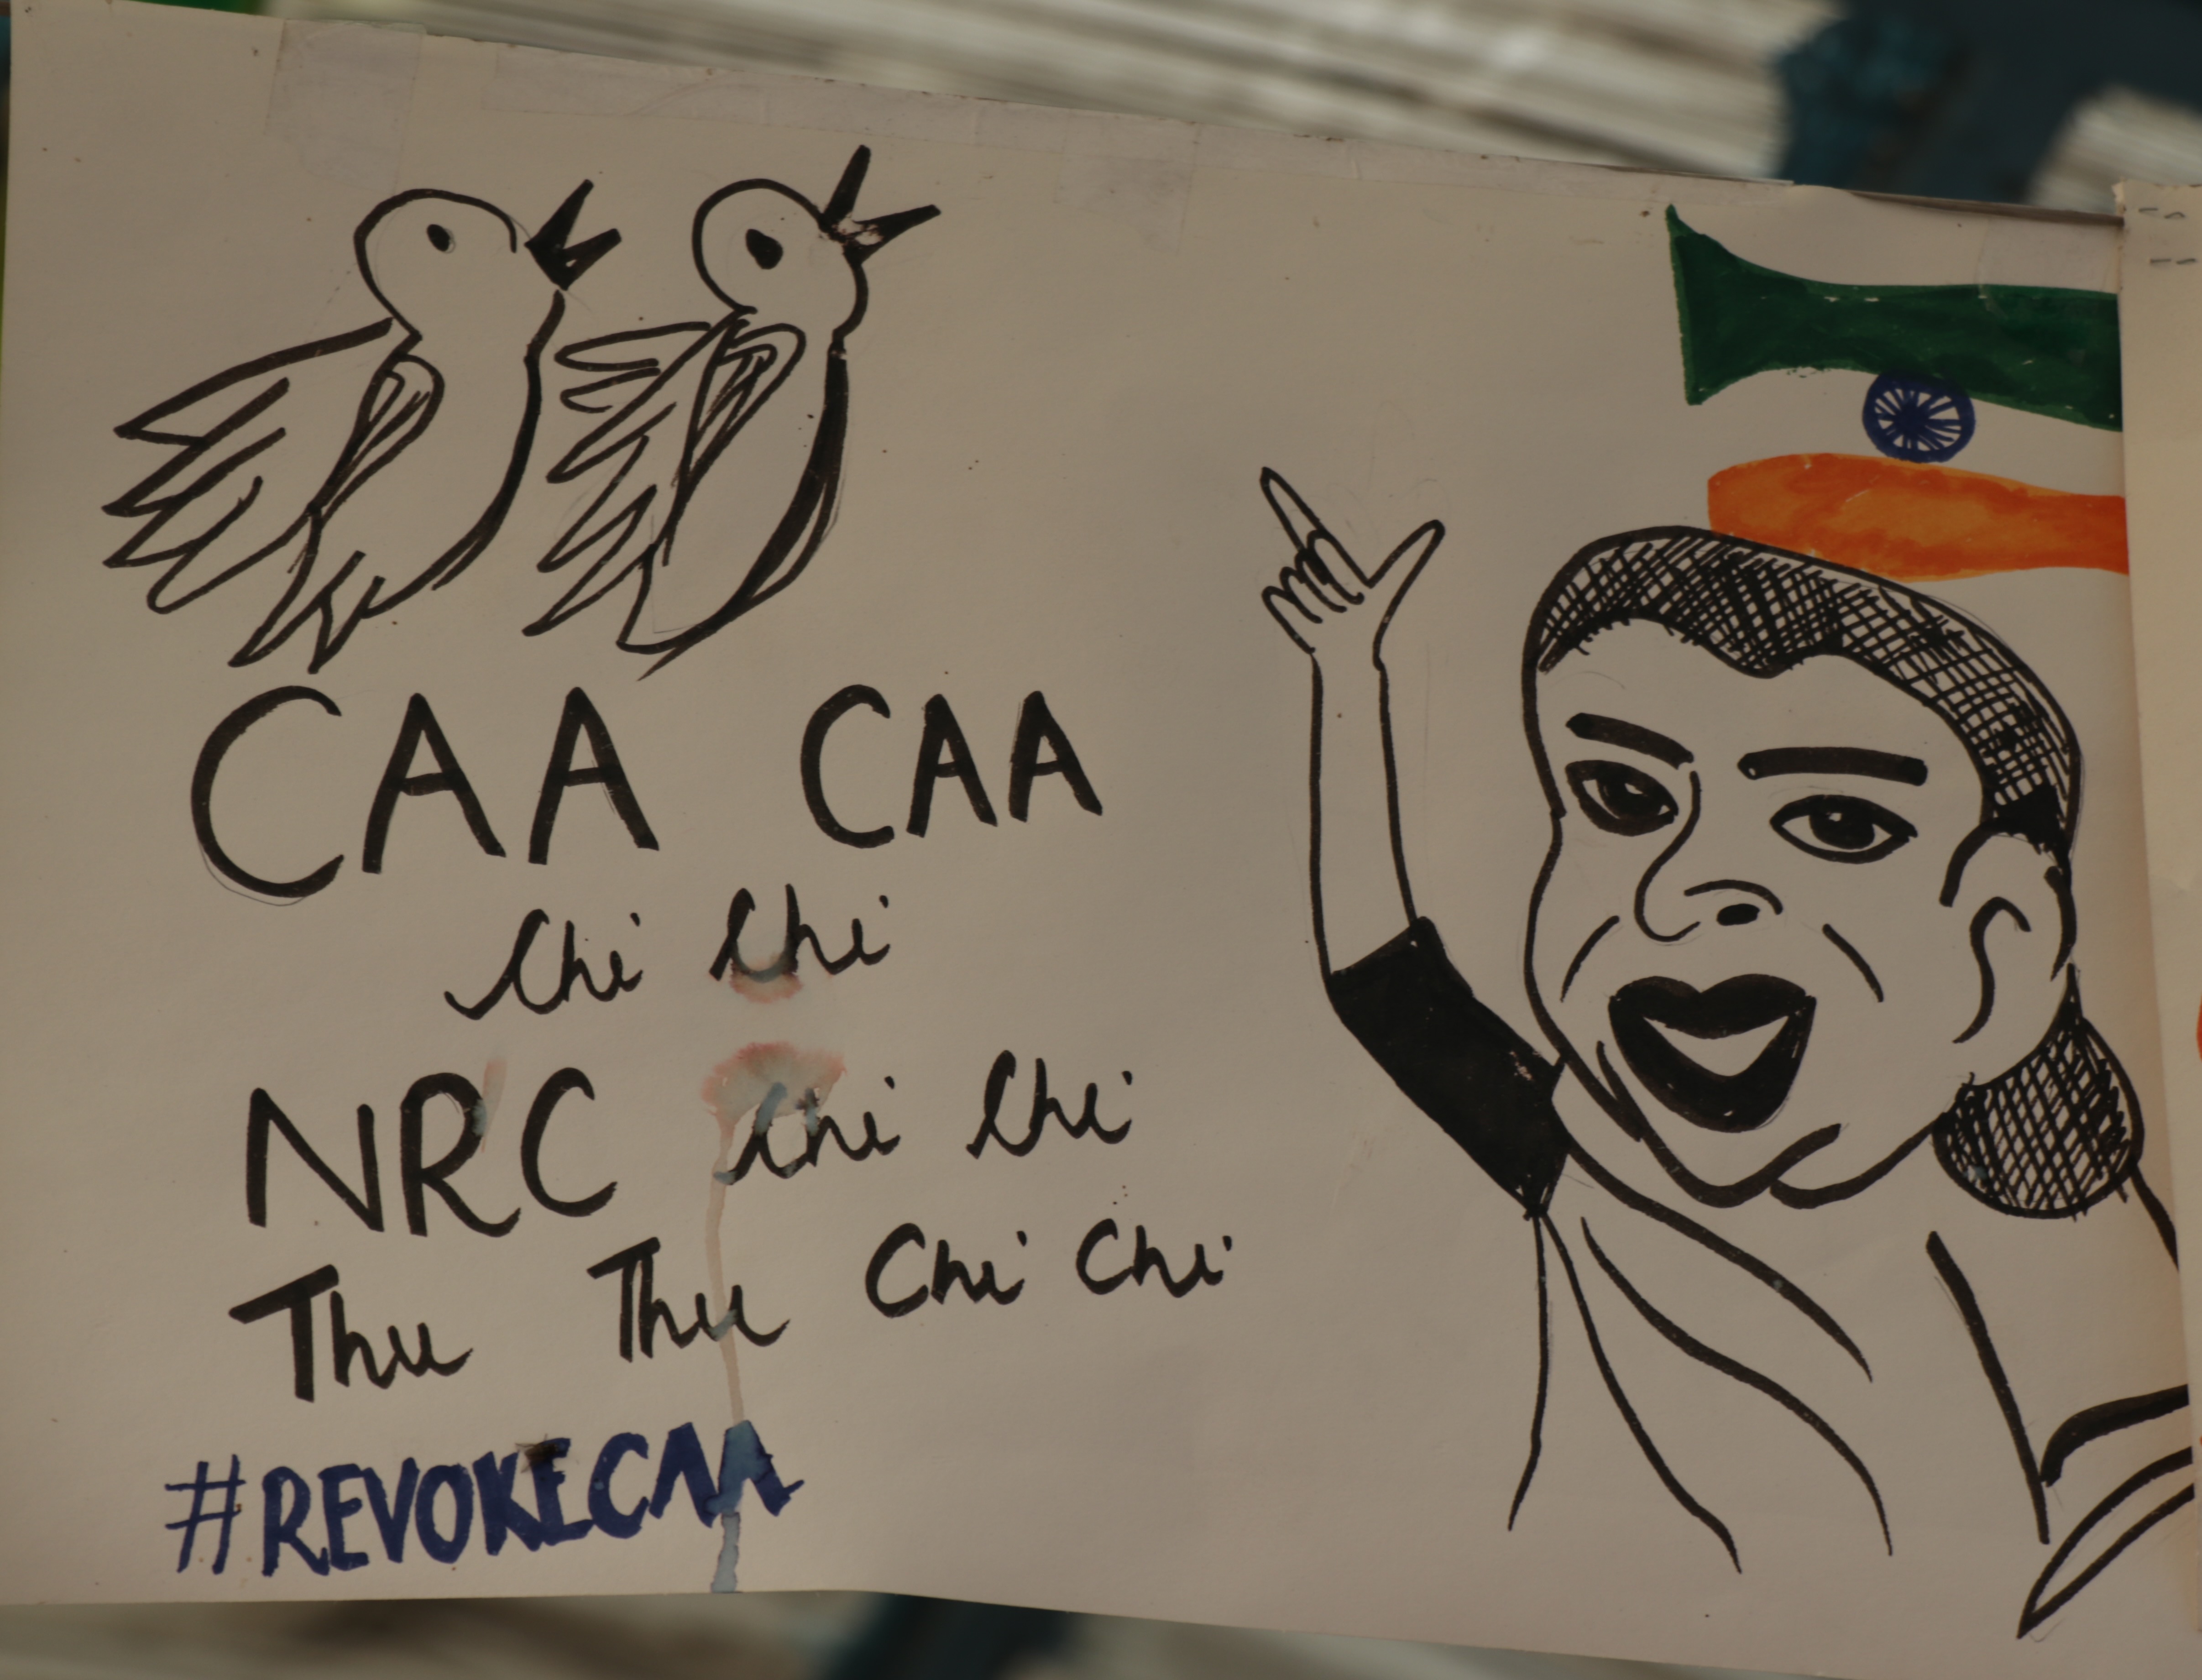 CAA CAA
Chi Chi
NRC Chi Chi
Thu Thu Chi Chi
#REVOKECAA